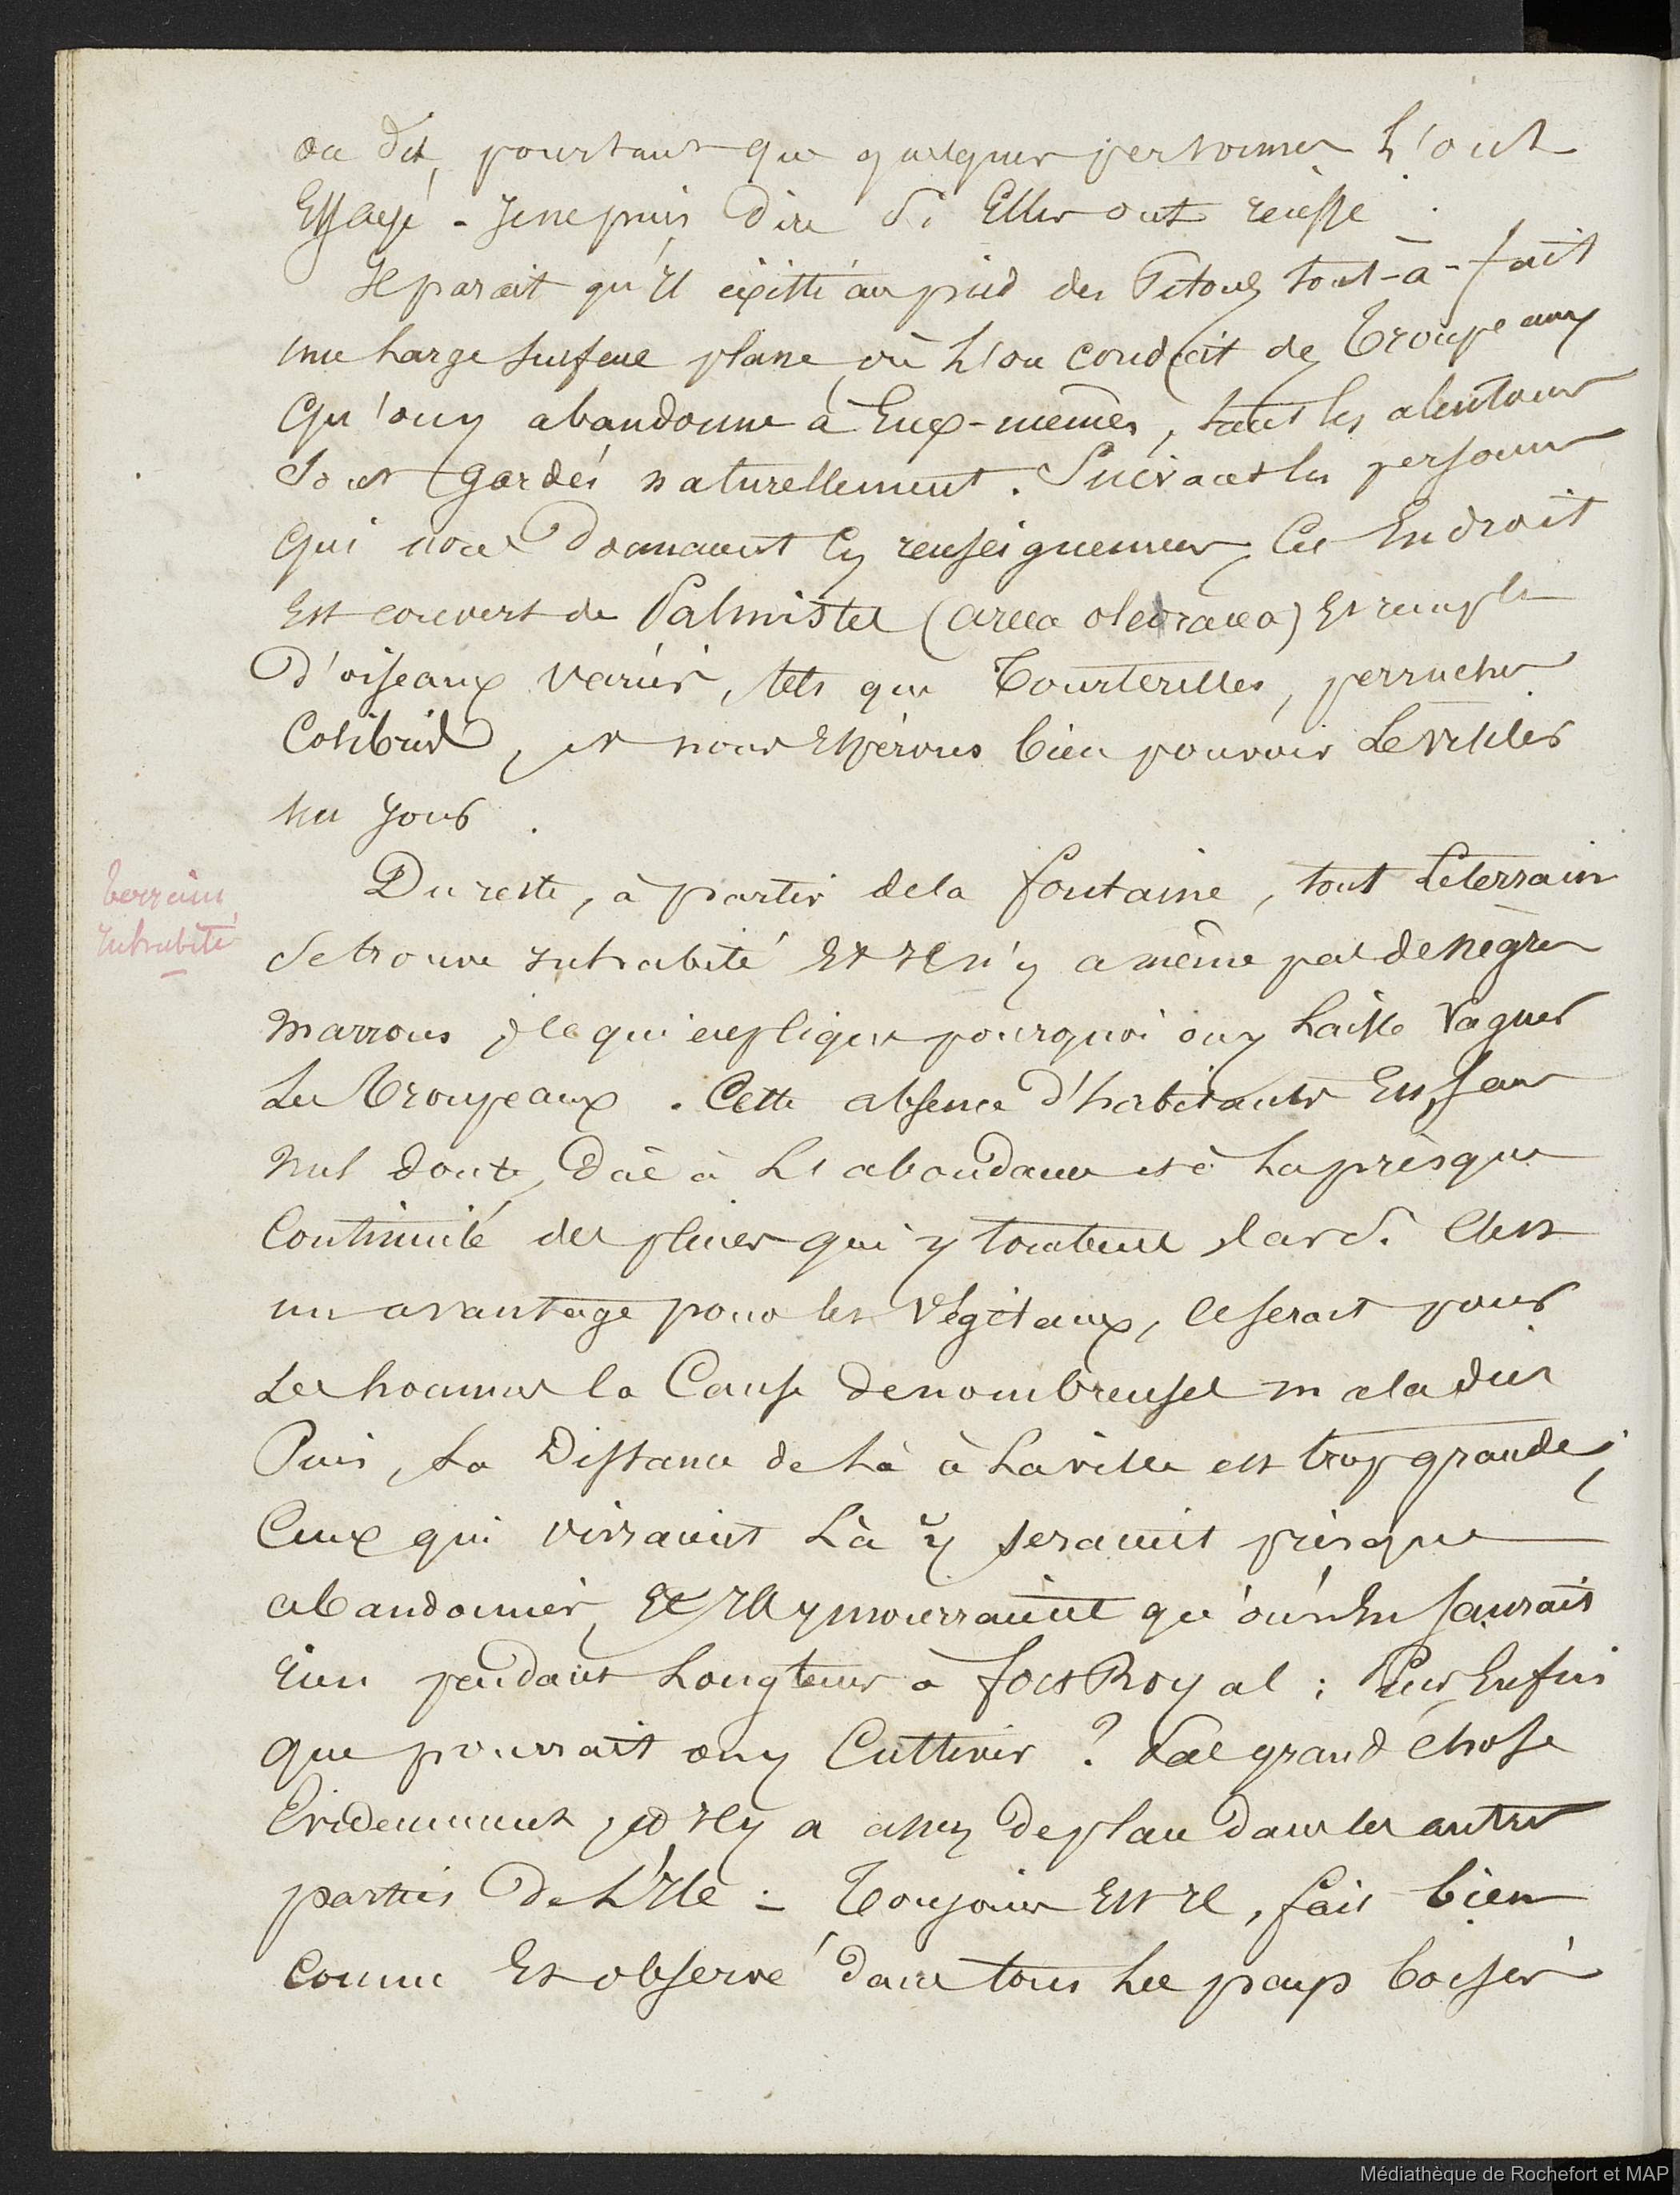 on dit, pourtant que quelques personnes l'ont
Essayé - Je ne puis dire si Elles ont réussi.
Il parait qu'il existe au pied des Pitons, tout-à-fait
une large surface plane où l'on conduit des Troupeaux
Qu'on y abandonne à Eux-mêmes, tant les alentours
sont gardés naturellement. Suivant les personnes
Qui nous donnaient ces renseignements, Cet Endroit
Est couvert de Palmistes (areca oleracea) Et rempli
D'oiseaux variés, tels que Tourterelles, perruches
Colibris, et nous Espérons bien pouvoir Le visiter
un jour.
terrain
inhabité
Du reste, à partir de la fontaine, tout Le terrain
se trouve inhabité Et Il n'y a même pas de nègres
marrons, ce qui explique pourquoi on y Laisse vaguer
Les Troupeaux. Cette absence d'habitants Est, sans
Nul doute, dûe à L'abondance et à La presque
Continuité des pluies qui y tombent
un avantage pour les Végétaux, ce serait pour
Les hommes la Cause de nombreuses maladies
Puis, La Distance de Là à La ville est trop grande;
Ceux qui vivraient Là y seraient presque
abandonnés, Et Ils y mourraient qu'on n'En saurait
rien pendant Longtems à fort Royal; Puis Enfin
Que pourrait on y Cultiver? Pas grand chose
Evidemment, et Il y a assez de place dans les autres
parties De L'Ile - Toujours Est Il, fait bien
connu Et observé dans tous Les pays boisés